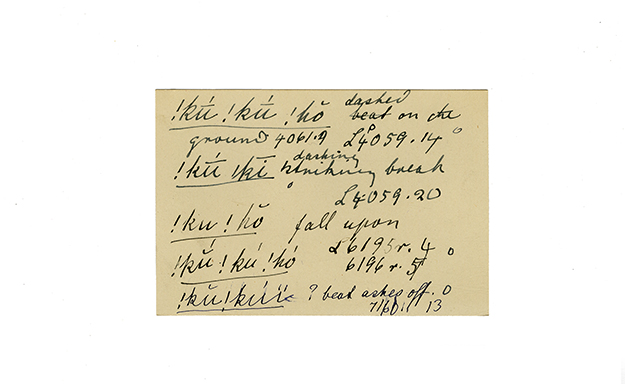 !kŭ́ !kŭ́ !hŏ dashed beat on the
ground 4061.9 L4059.14
!kŭ́ !kĭ́ dashing striking break
L4059.20
!ku !hŏ fall upon
L 6195 r. 4
!kŭ́ !kú !hó 6196 r. 5
!kŭ !kúï ? beat ashes off. 0
13